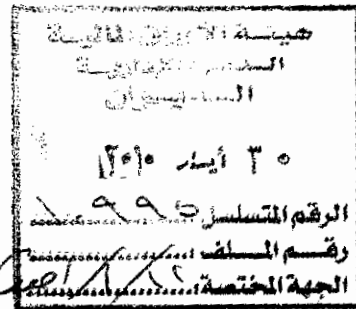 هيئة الأوراق المالية
الدائرة الإدارية
الديوان
٣٠ أيار ٢٠١٠
الرقم المتسلسل
رقم الملف
الجهة المختصة